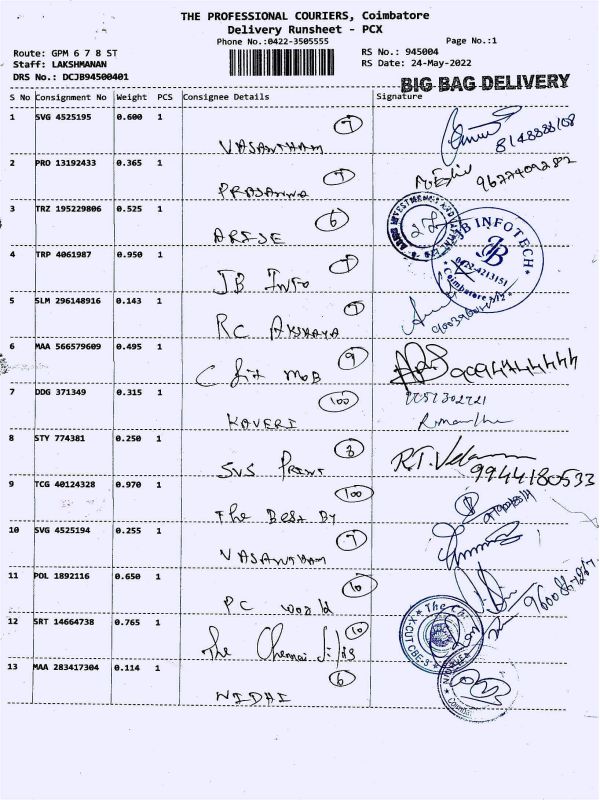 THE PROFESSIONAL COURIERS, Coimbatore
Delivery Runsheet - PCX
Phone No.:0422-3505555
Page No.:1
Route: GPM 6 7 8 ST
RS No.: 945004
Staff: LAKSHMANAN
RS Date: 24-May-2022
DRS No.: DCJB94500401
BIG BAG DELIVERY
S No Consignment No Weight PCS Consignee Details Signature
1 SVG 4525195 0.600 1
7
VASANTHAM
8148888108
2 PRO 13192433 0.365 1
PRASANNA
9677409282
3 TRZ 195229806 0.525 1
6
ARISE
4 TRP 4061987 0.950 1
JB INFOTECH
JB
0422-4213151
Coimbatore
JB INFO
5 SLM 296148916 0.143 1
7
RC AKSHAYA
6 MAA 566579609 0.495 1
9
C fix MOB
7 DDG 371349 0.315 1
100
KAVERI
8 STY 774381 0.250 1
3
SVS PRINT
R.T. Velamman
9944180533
9 TCG 40124328 0.970 1
100
The Best By
10 SVG 4525194 0.255 1
7
VASANTHAM
11 POL 1892116 0.650 1
10
PC World
9600867267
12 SRT 14664738 0.765 1
10
The Chennai Silks
The Ch
X-CUT CBE-3
13 MAA 283417304 0.114 1
6
NIDHI